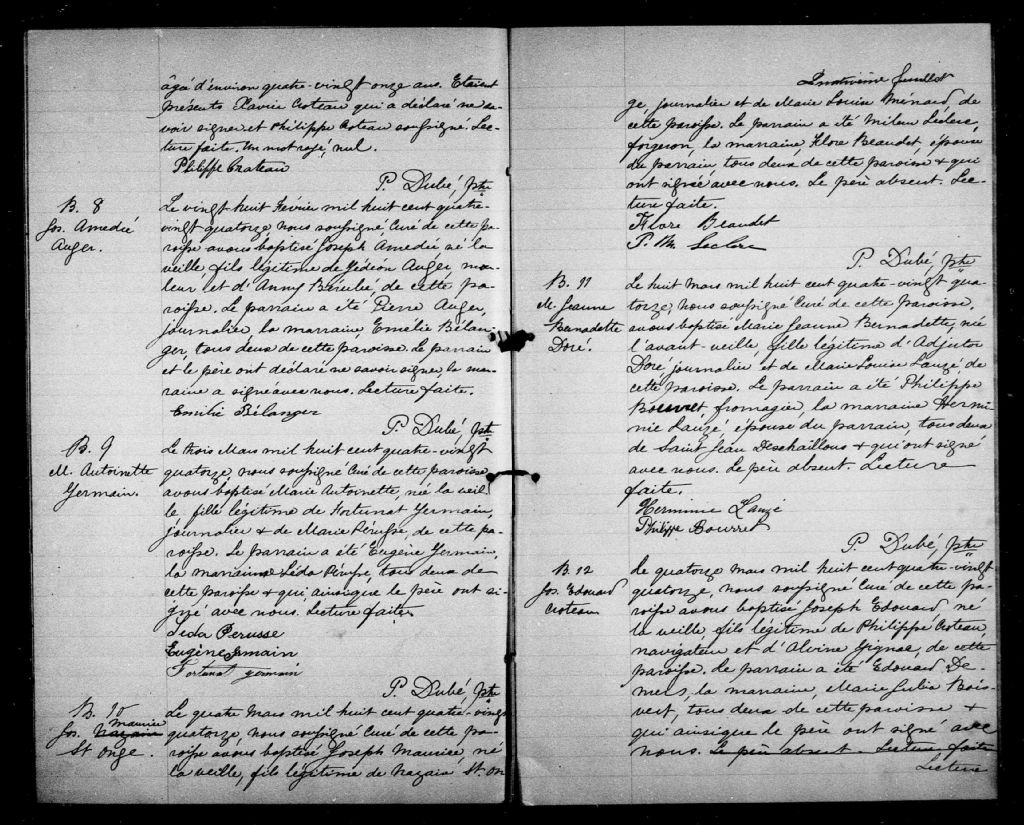 âgé d'environ quatre-vingt onze ans. Etaient
présents Xavier Croteau qui a déclaré ne sa-
voir signer et Philippe Croteau soussigné. Lec-
ture faite. Un mot rayé, nul.
Philippe Croteau
P. Dubé, ptre
B. 8
Jos. Amedié
Auger.
Le vingt-huit Février mil huit cent quatre-
vingt quatorze, nous soussigné, Curé de cette pa-
roisse avons baptisé Joseph Amedié né la
veille, fils légitime de Gédéon Auger, mou-
leur et d'Anny Bérubé, de cette pa-
roisse. Le parrain a été Pierre Auger,
journalier, la marraine Emélie Bélan-
ger, tous deux de cette paroisse. Le parrain
et le père ont déclaré ne savoir signer, la mar-
raine a signé avec nous. Lecture faite.
Emilie Bélanger
P. Dubé, ptre
B. 9
M. Antoinette
Germain.
Le trois Mars mil huit cent quatre-vingt
quatorze, nous soussigné Curé de cette paroisse
avons baptisé Marie Antoinette, née la veil-
le fille légitime de Fortunat Germain,
journalier & de Marie Pérusse, de cette pa-
roisse. Le parrain a été Eugène Germain,
la marraine Léda Pérusse, tous deux de
cette paroisse & qui, ainsi que le père ont si-
gné avec nous. Lecture faite.
Leda Perusse
Eugène Germain
Fortunat germain
P. Dubé, ptre
B. 10
Jos. Nazaire maurice
St Onge.
Le quatre Mars mil huit cent quatre-vingt
quatorze, nous soussigné Curé de cette pa-
roisse avons baptisé Joseph Maurice, né
la veille, fils légitime de Nazaire St. On
Quatrième feuillet
ge, journalier et de Marie Louise Ménard, de
cette paroisse. Le parrain a été Leclerc,
forgeron, la marraine Flore Beaudet, épouse
du parrain, tous deux de cette paroisse & qui
ont signé avec nous. Le père absent. Lec-
ture faite.
Flore Beaudet
Leclerc
P. Dubé, ptre
B. 11
M. Jeanne
Bernadette
Doré.
Le huit Mars mil huit cent quatre-vingt qua-
torze, nous soussigné Curé de cette paroisse,
avons baptisé Marie Jeanne Bernadette, née
l'avant-veille, fille légitime d'Adjutor
Doré, journalier et de Marie Louise Lauzé, de
cette paroisse. Le parrain a été Philippe
Bourret, fromagier, la marraine Hermi-
nie Lauzé, épouse du parrain, tous deux
de Saint Jean Deschaillons & qui ont signé
avec nous. Le père absent. Lecture
faite.
Herminie Lauzé
Philippe Bourret
P. Dubé, ptre
B. 12
Jos. Edouard
Croteau
Le quatorze Mars mil huit cent quatre-vingt
quatorze, nous soussigné Curé de cette pa-
roisse avons baptisé Joseph Edouard né
la veille, fils légitime de Philippe Croteau,
navigateur et d'Alvine Gignac, de cette
paroisse. Le parrain a été Edouard De-
mers, la marraine, Marie Julia Bois-
vert, tous deux de cette paroisse &
qui ainsi que le père ont signé avec
nous. Le père absent. Lecture faite
Lecture